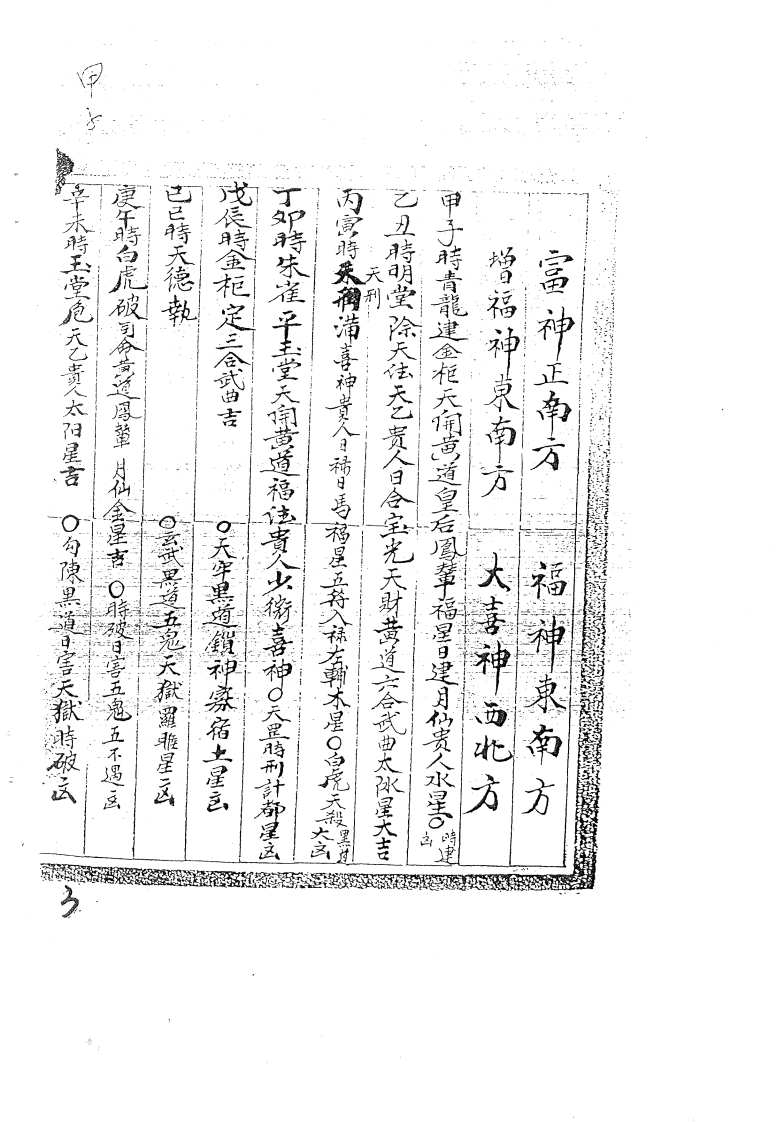 甲子
富神正南方 福神東南方
增福神東南方 大喜神西北方
甲子時青龍建金柜天開黄道皇后鳳輦福星日建月仙貴人水星〇時建凶
乙丑時明堂除天法天乙貴人日合宝光天財黄道六合武曲太阴星大吉
天刑
丙寅時滿喜神貴人日禄日馬福星五符入禄左輔木星〇白虎天殺黑道大凶
丁卯時朱雀平玉堂天開黄道福法貴人少微喜神〇天罡時刑計都星凶
戊辰時金柜定三合武曲吉 〇天牢黑道鎖神寡宿土星凶
己巳時天德執 〇玄武黑道五鬼天獄羅睺星凶
庚午時白虎破司命黄道鳳輦月仙金星吉 〇時破日害五鬼五不遇凶
辛未時玉堂危天乙貴人太阳星吉 〇勾陳黑道日害天獄時破凶
3